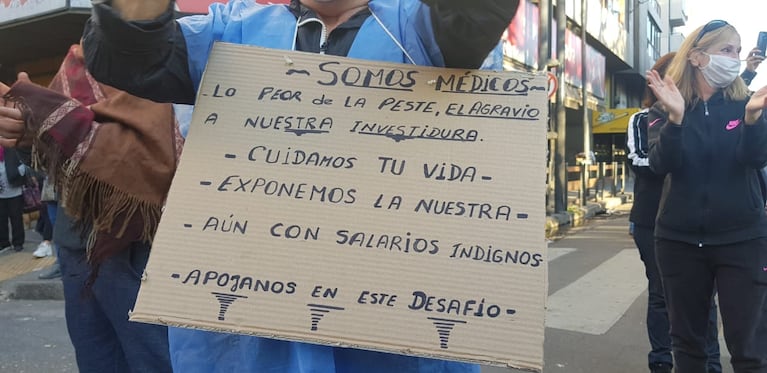 ~ SOMOS MÉDICOS ~
LO PEOR de LA PESTE, EL AGRAVIO
A NUESTRA INVESTIDURA.
- CUIDAMOS TU VIDA -
- EXPONEMOS LA NUESTRA -
- AÚN CON SALARIOS INDIGNOS
- APOJANOS EN ESTE DESAFÍO -